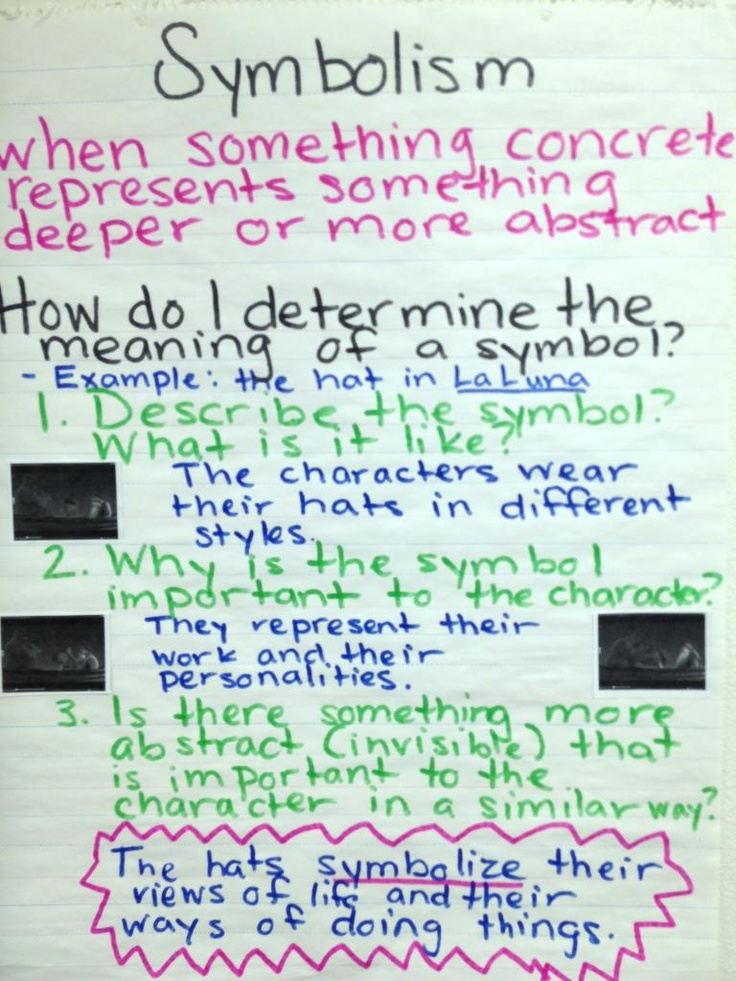 Symbolism
when something concrete
represents something
deeper or more abstract
How do I determine the
meaning of a symbol?
- Example: the hat in La Luna
1. Describe the symbol?
What is it like?
The characters wear
their hats in different
styles.
2. Why is the symbol
important to the character?
They represent their
work and their
personalities.
3. Is there something more
abstract (invisible) that
is important to the
character in a similar way?
The hats symbolize their
views of life and their
ways of doing things.